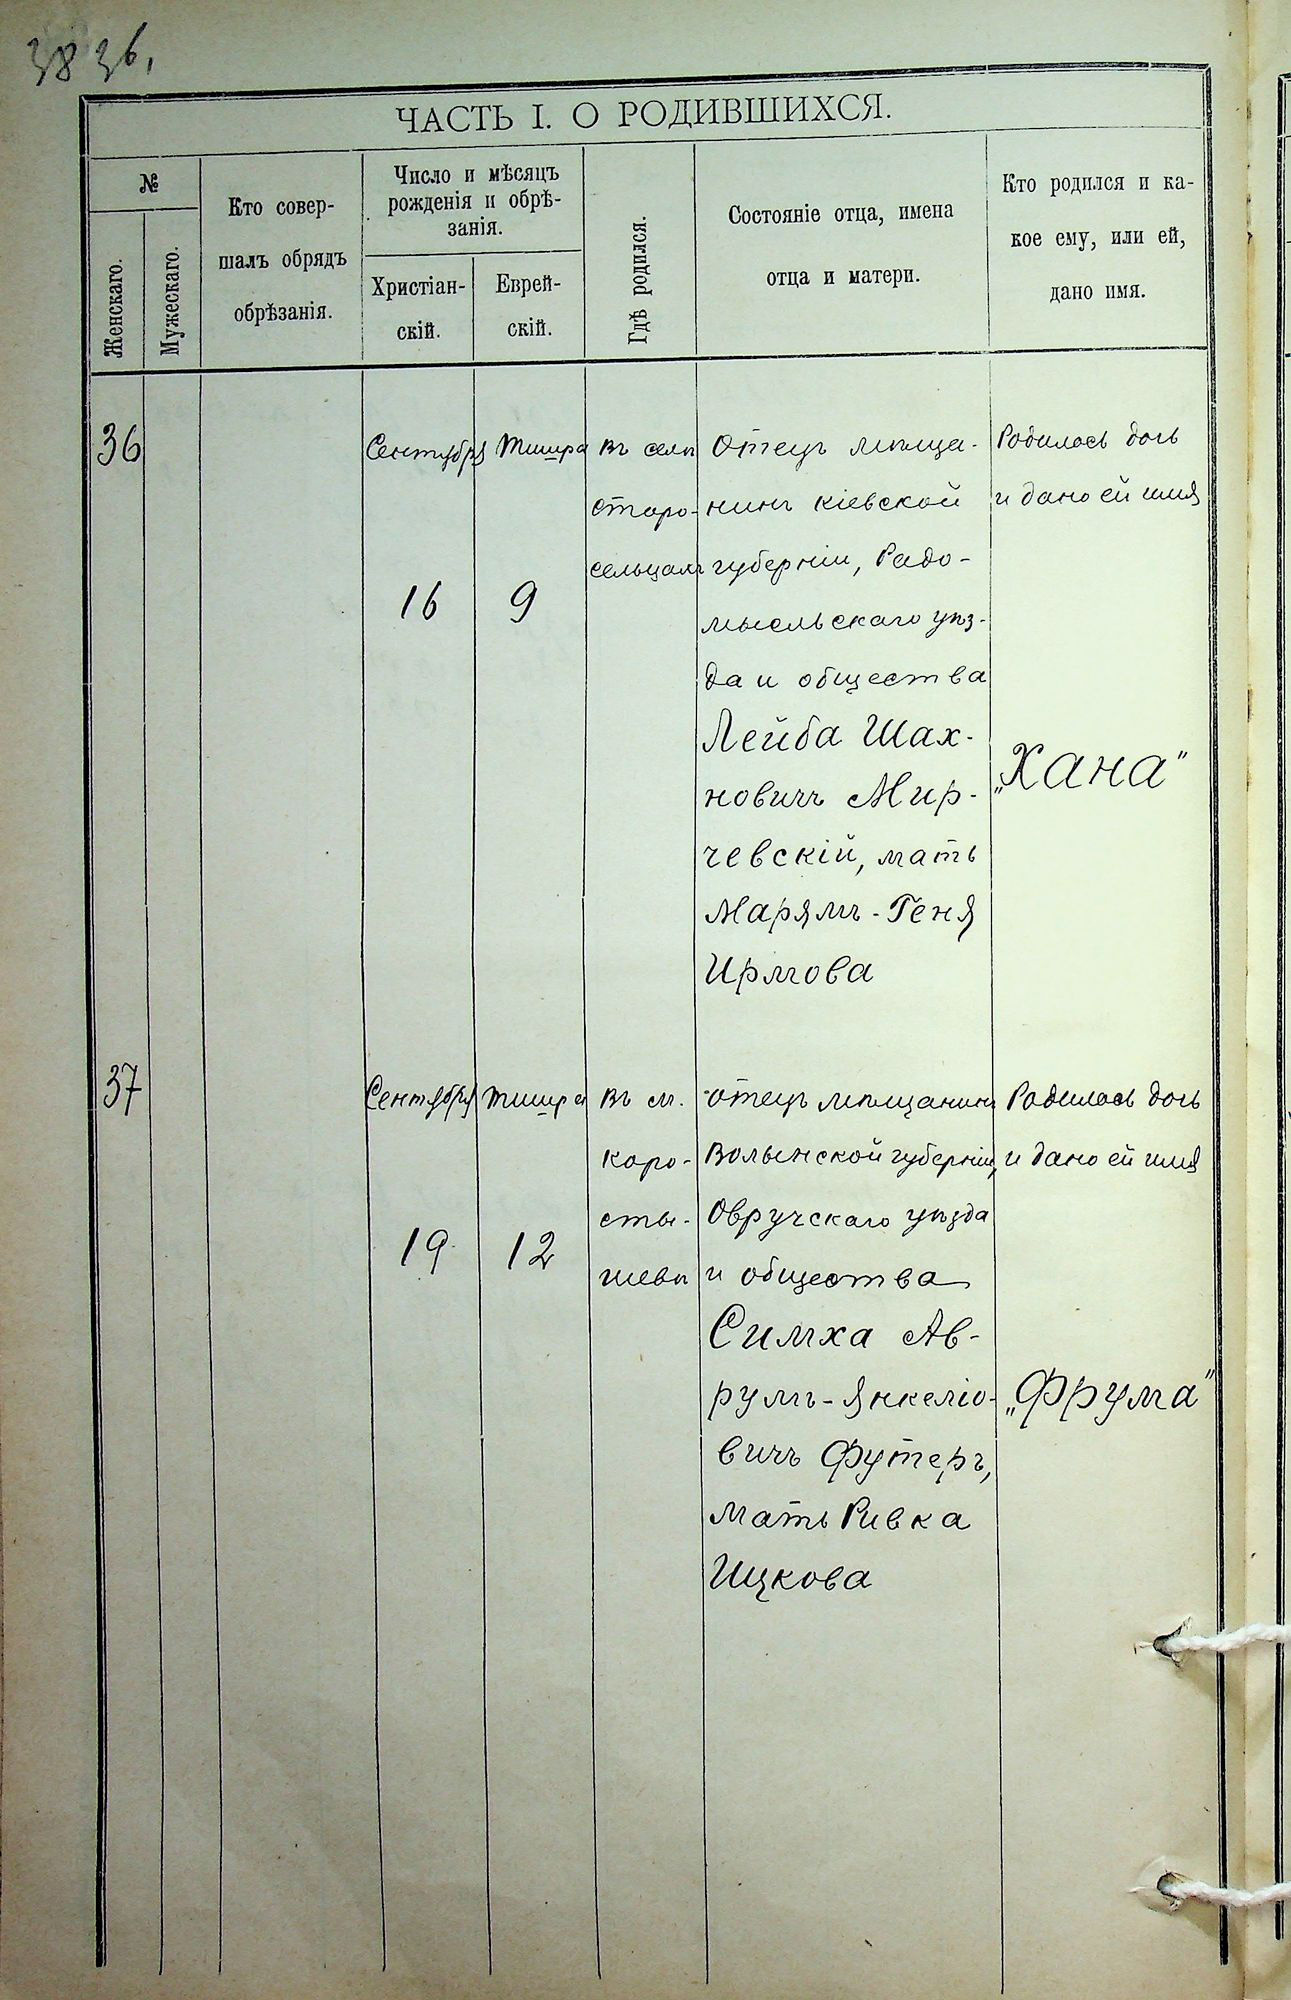 38 36,
ЧАСТЬ I. О РОДИВШИХСЯ.
№
Женскаго.
Мужескаго.
Кто совер-
шалъ обрядъ
обрѣзанія.
Число и мѣсяцъ
рожденія и обрѣ-
занія.
Христіан-
скій.
Еврей-
скій.
Гдѣ родился.
Состояніе отца, имена
отца и матери.
Кто родился и ка-
кое ему, или ей,
дано имя.
36
Сентября
16
Тишра
9
въ селѣ
старо-
сельцахъ
Отецъ мѣща-
нинъ кіевской
губерніи, Радо-
мысльскаго уѣз-
да и общества
Лейба Шах-
новичъ Мир-
чевскій, мать
Марямъ-Геня
Ирмова
Родилась дочь
и дано ей имя
„Хана"
37
Сентября
19
Тишра
12
въ м.
коро-
сты-
шевѣ
отецъ мѣщанинъ
Волынской губерніи,
Овручскаго уѣзда
и общества
Симха Ав-
румъ-Янкеліо-
вичъ Футеръ,
мать Ривка
Ицкова
Родилась дочь
и дано ей имя
„Фрума"